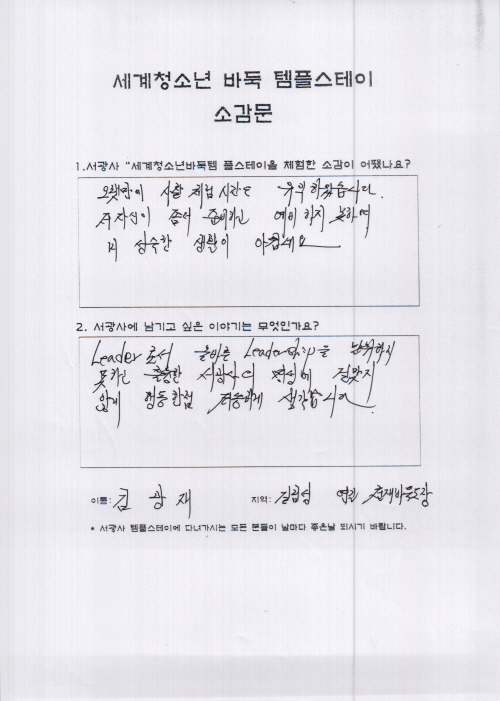 세계청소년 바둑 템플스테이
소감문
1.서광사 "세계청소년바둑템 플스테이를 체험한 소감이 어땠나요?
오랫만에 사찰 체험 시간은
하지 못하여
미 성숙한 생활이 아쉽네요
2. 서광사에 남기고 싶은 이야기는 무엇인가요?
Leader로서 올바른 Leadership을
못하고 훌륭한 서광사의 명성에 걸맞지
않게 행동한점 죄송하게
이름: 김 광 재 지역: 바둑도장
* 서광사 템플스테이에 다녀가시는 모든 분들이 날마다 좋은날 되시기 바랍니다.